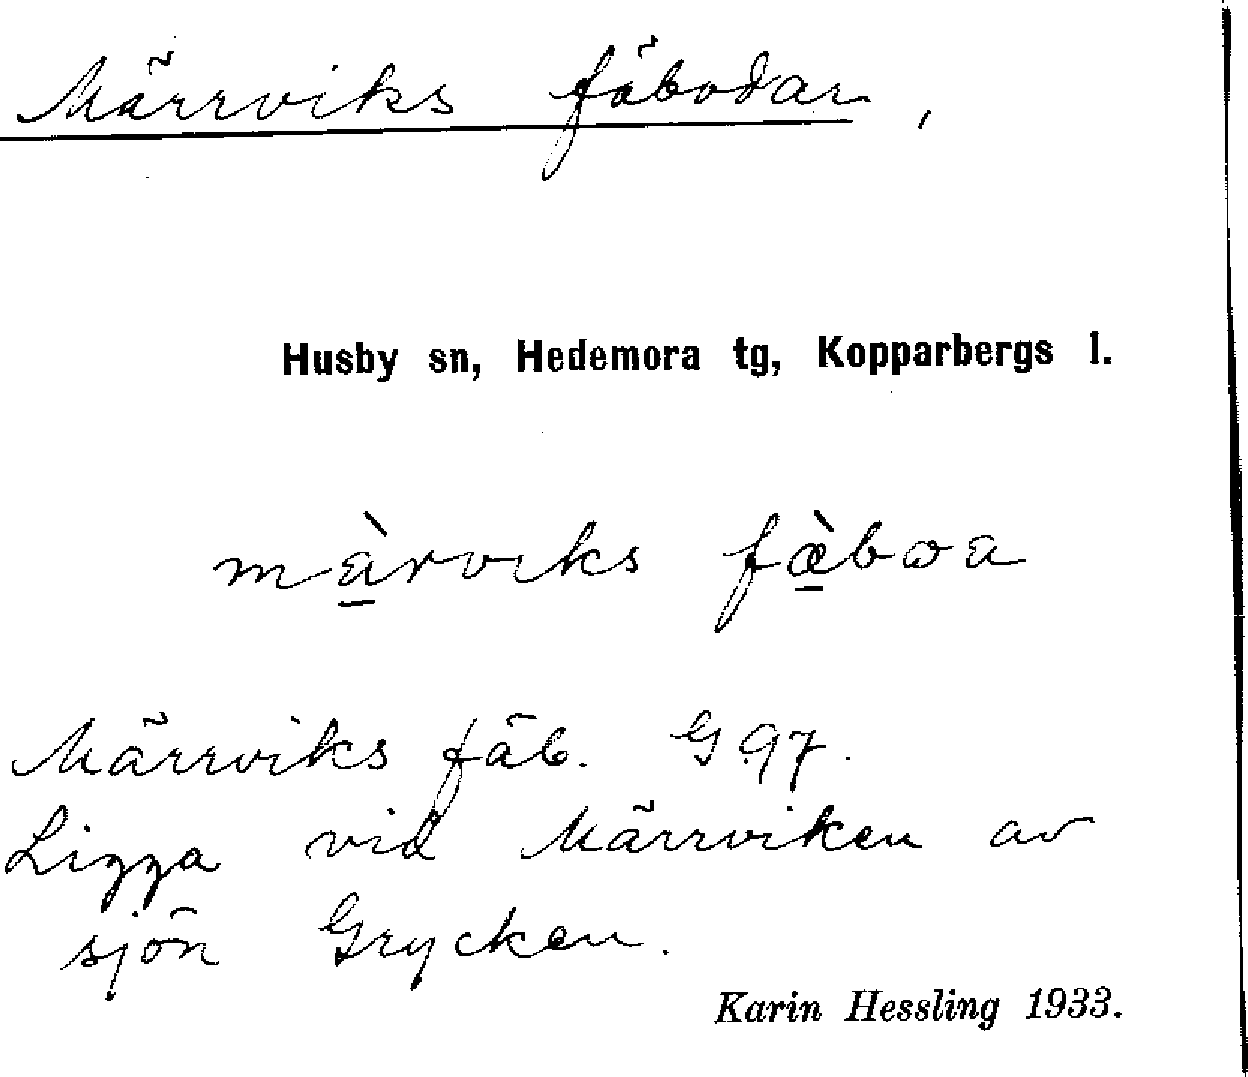 Märrviks fäbodar,
Husby sn, Hedemora tg, Kopparbergs l.
mà̠rviks fæ̠̀bɷa
Märrviks fäb. G 97.
Ligga vid Märrviken av
sjön Grycken.
Karin Hessling 1933.